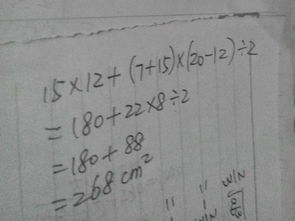 15×12+(7+15)×(20-12)÷2
=180+22×8÷2
=180+88
=268cm²